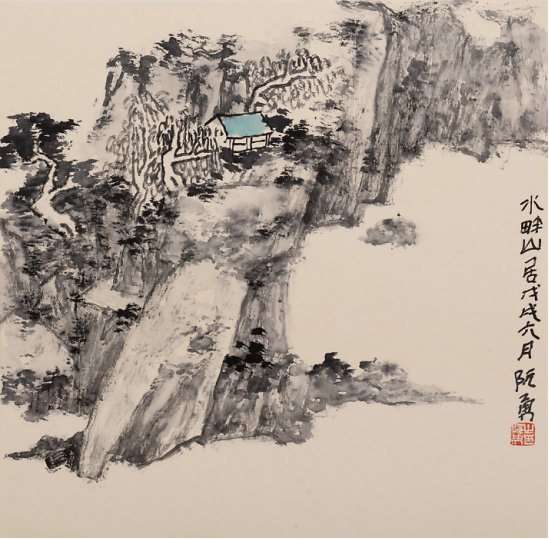 水畔山居戊戌六月阮勇